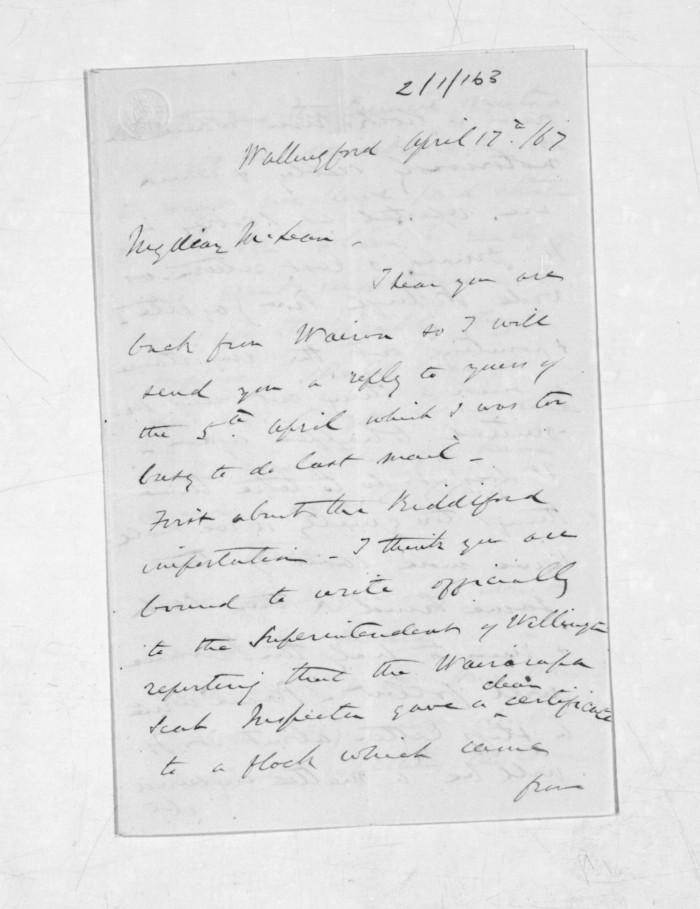 2/1/163
Wallingford April 17th /67
My dear McLean -
I hear you are
back from Wairoa so I will
send you a reply to yours of
the 5th April which I was too
busy to do last mail -
First about the Riddiford
importation - I think you are
bound to write officially
to the Superintendent of Wellington
reporting that the Wairarapa
clean
Scab Inspector gave a ^ certificate
to a flock which came
from